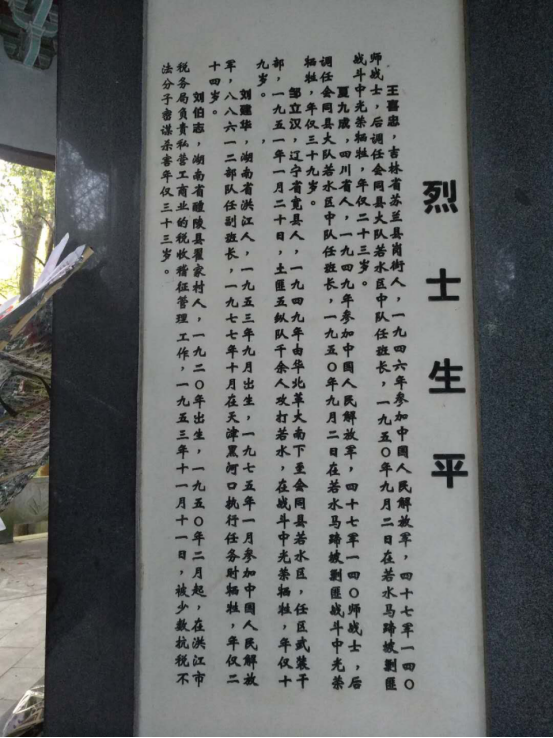 烈士生平
王喜忠，吉林省苏兰县岗街人，一九四六年参加中国人民解放军，四十七军一四〇
师战士，后调任会同县大队若水区中队任班长，一九五〇年九月二日在若水马蹄坡剿匪
战斗中光荣牺牲，年仅二十三岁。
夏九成，四川省人，一九四九年参加中国人民解放军，四十七军一四〇师战士，后
调任会同县大队若水区中队任班长，一九五〇年九月二日在若水马蹄坡剿匪战斗中光荣
牺牲，年仅三十九岁。
邹立汉，辽宁省宽县人，一九四九年由华北革大南下至会同县若水区，任区武装干
部，一九五一年一月二十日，土匪五纵队千余人攻打若水，在战斗中光荣牺牲，年仅十
九岁。
刘建华，湖南省洪江人，一九五三年九月出生，一九七五年一月参加中国人民解放
军，八八六一二部队任副班长，一九七七年十月在天津黑河口执行任务时牺牲，年仅二
十四岁。
刘伯志，湖南省醴陵县瞿家村人，一九二〇年出生，一九五〇年二月起，在洪江市
税务局负责私营工商业的税收稽征管理工作，一九五三年十一月十一日，被少数抗税不
法分子密谋杀害年仅三十三岁。